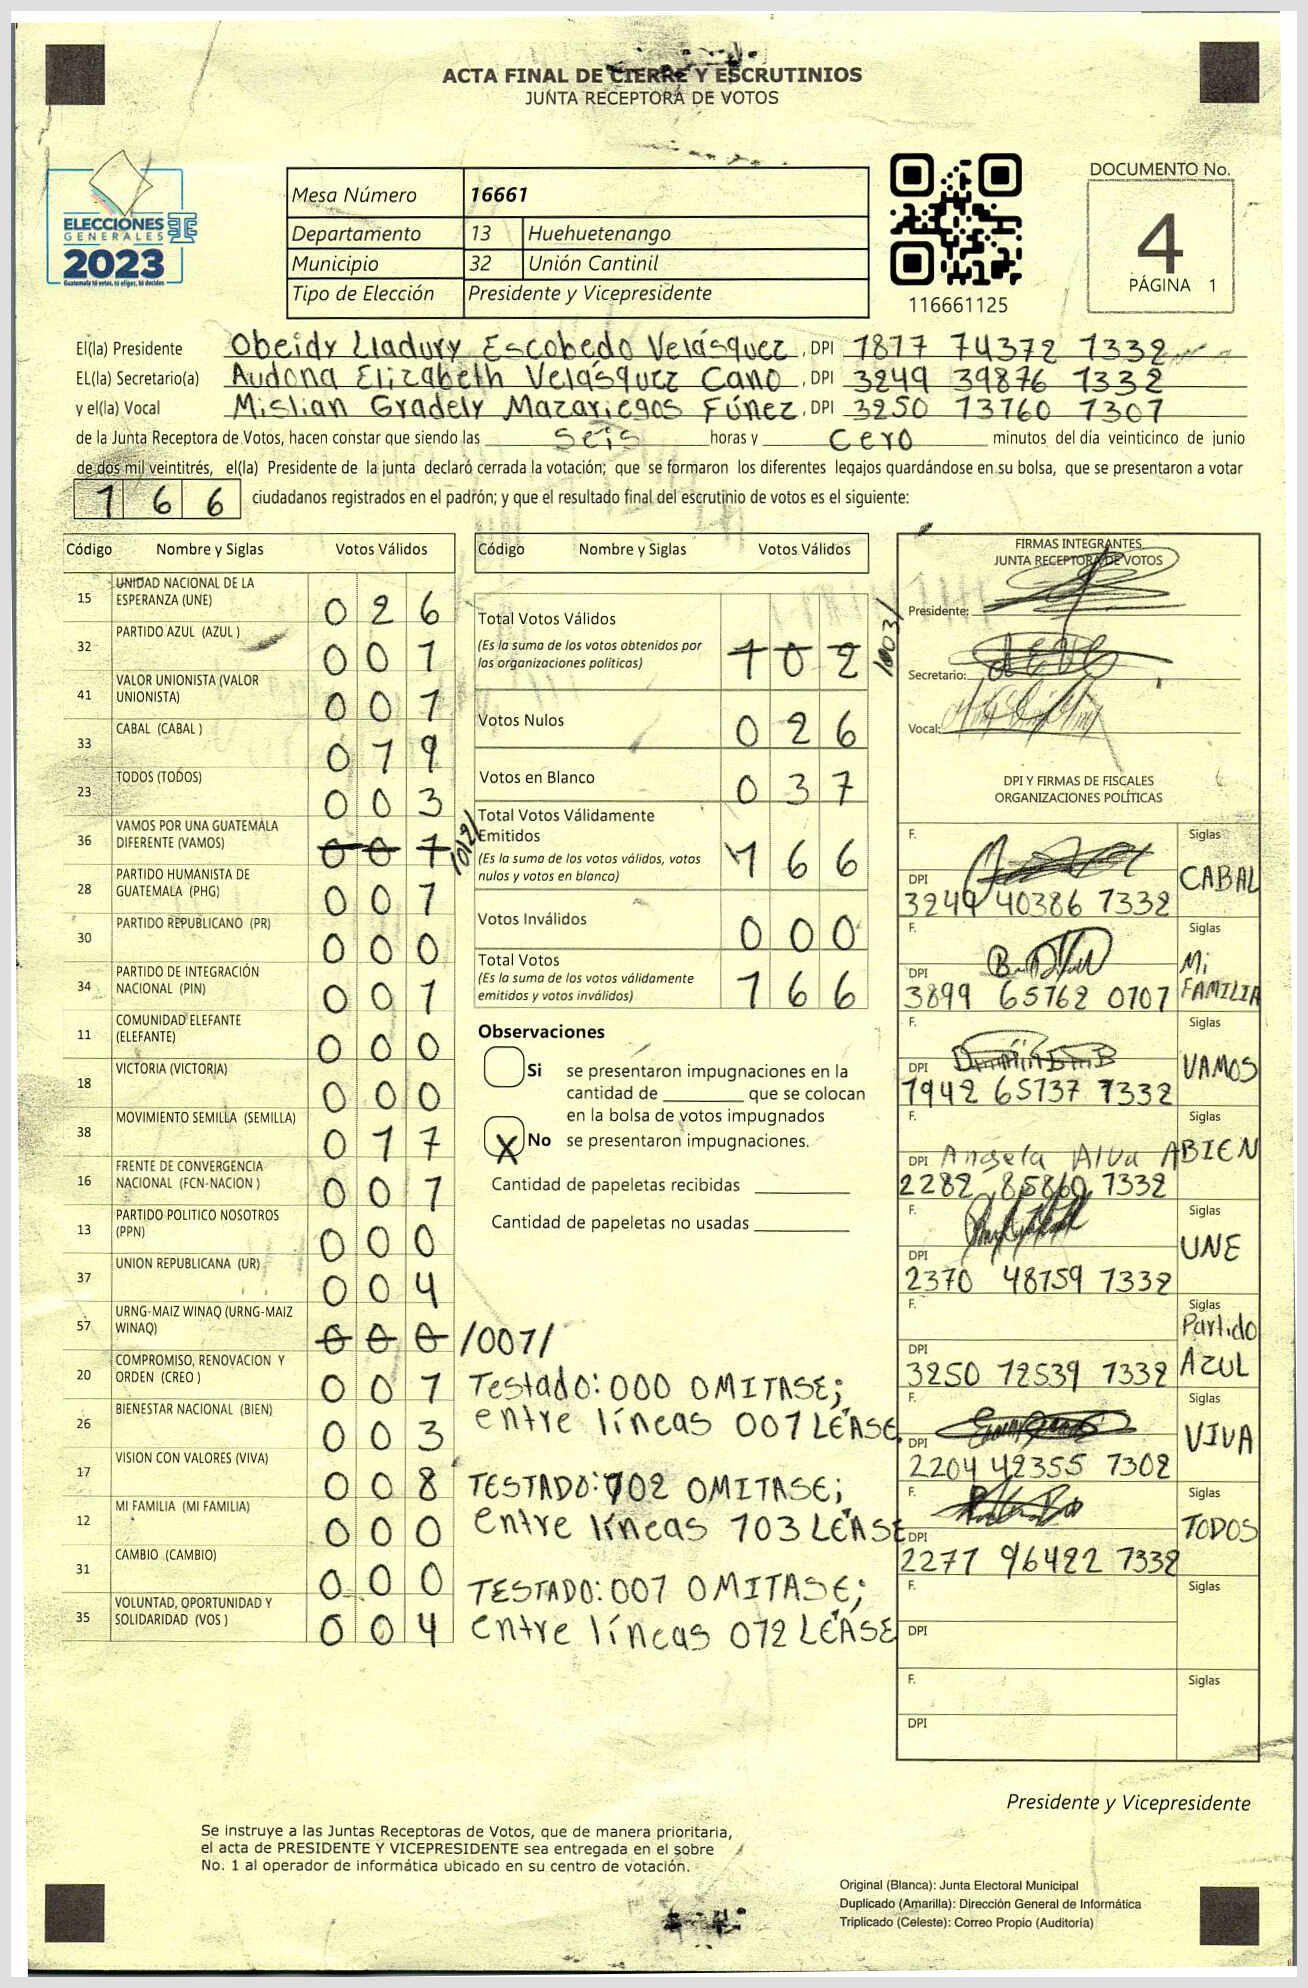 ACTA FINAL DE CIERRE Y ESCRUTINIOS
JUNTA RECEPTORA DE VOTOS
ELECCIONES
GENERALES
2023
Guatemala tú votas, tú eliges, tú decides
Mesa Número 16661
Departamento 13 Huehuetenango
Municipio 32 Unión Cantinil
Tipo de Elección Presidente y Vicepresidente
116661125
DOCUMENTO No.
4
PÁGINA 1
El(la) Presidente Obeidy Lladury Escobedo Velásquez, DPI 1877 74372 1332
EL(la) Secretario(a) Audona Elizabeth Velásquez Cano, DPI 3249 39876 1332
y el(la) Vocal Mislian Gradely Mazariegos Fúnez, DPI 3250 13760 1307
de la Junta Receptora de Votos, hacen constar que siendo las seis horas y cero minutos del día veinticinco de junio
de dos mil veintitrés, el(la) Presidente de la junta declaró cerrada la votación; que se formaron los diferentes legajos quardándose en su bolsa, que se presentaron a votar
166 ciudadanos registrados en el padrón; y que el resultado final del escrutinio de votos es el siguiente:
Código Nombre y Siglas Votos Válidos
15 UNIDAD NACIONAL DE LA ESPERANZA (UNE) 026
32 PARTIDO AZUL (AZUL ) 001
41 VALOR UNIONISTA (VALOR UNIONISTA) 001
33 CABAL (CABAL ) 019
23 TODOS (TODOS) 003
36 VAMOS POR UNA GUATEMALA DIFERENTE (VAMOS) 001 /012/
28 PARTIDO HUMANISTA DE GUATEMALA (PHG) 001
30 PARTIDO REPUBLICANO (PR) 000
34 PARTIDO DE INTEGRACIÓN NACIONAL (PIN) 001
11 COMUNIDAD ELEFANTE (ELEFANTE) 000
18 VICTORIA (VICTORIA) 000
38 MOVIMIENTO SEMILLA (SEMILLA) 017
16 FRENTE DE CONVERGENCIA NACIONAL (FCN-NACION ) 001
13 PARTIDO POLITICO NOSOTROS (PPN) 000
37 UNION REPUBLICANA (UR) 004
57 URNG-MAIZ WINAQ (URNG-MAIZ WINAQ) 000 /001/
20 COMPROMISO, RENOVACION Y ORDEN (CREO ) 001
26 BIENESTAR NACIONAL (BIEN) 003
17 VISION CON VALORES (VIVA) 008
12 MI FAMILIA (MI FAMILIA) 000
31 CAMBIO (CAMBIO) 000
35 VOLUNTAD, OPORTUNIDAD Y SOLIDARIDAD (VOS ) 004
Código Nombre y Siglas Votos Válidos
Total Votos Válidos 102 /103/
(Es la suma de los votos obtenidos por
las organizaciones políticas)
Votos Nulos 026
Votos en Blanco 037
Total Votos Válidamente
Emitidos 166
(Es la suma de los votos válidos, votos
nulos y votos en blanco)
Votos Inválidos 000
Total Votos 166
(Es la suma de los votos válidamente
emitidos y votos inválidos)
Observaciones
Si se presentaron impugnaciones en la
cantidad de ________ que se colocan
en la bolsa de votos impugnados
X No se presentaron impugnaciones.
Cantidad de papeletas recibidas
Cantidad de papeletas no usadas
Testado: 000 OMITASE;
entre líneas 001 LÉASE.
TESTADO: 102 OMITASE;
entre líneas 103 LÉASE
TESTADO: 001 OMITASE;
entre líneas 012 LÉASE
FIRMAS INTEGRANTES
JUNTA RECEPTORA DE VOTOS
Presidente:
Secretario:
Vocal:
DPI Y FIRMAS DE FISCALES
ORGANIZACIONES POLÍTICAS
F. Siglas CABAL
DPI 3249 40386 1332
F. Siglas Mi FAMILIA
DPI 3899 65762 0101
F. Siglas VAMOS
DPI 1942 65137 1332
F. Siglas BIEN
DPI Angela Alva A
2282 85860 1332
F. Siglas UNE
DPI 2370 48159 1332
F. Siglas Partido AZUL
DPI 3250 12539 1332
F. Siglas VIVA
DPI 2204 42355 1302
F. Siglas TODOS
DPI 2277 96422 1332
F. Siglas
DPI
F. Siglas
DPI
Presidente y Vicepresidente
Se instruye a las Juntas Receptoras de Votos, que de manera prioritaria,
el acta de PRESIDENTE Y VICEPRESIDENTE sea entregada en el sobre
No. 1 al operador de informática ubicado en su centro de votación.
Original (Blanca): Junta Electoral Municipal
Duplicado (Amarilla): Dirección General de Informática
Triplicado (Celeste): Correo Propio (Auditoría)